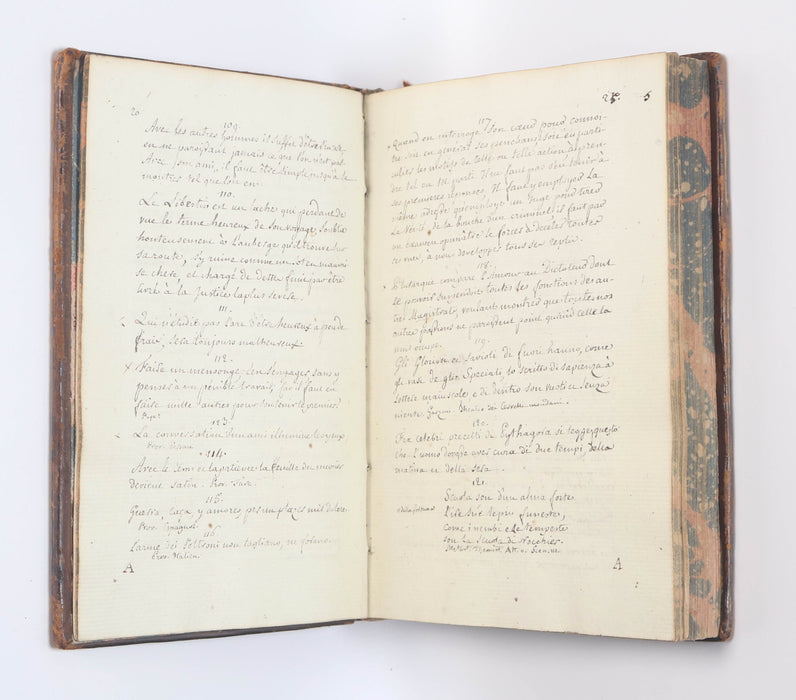 20
109.
Avec les autres hommes il suffit d'être
en ne paroissant jamais ce que l'on n'est pas.
Avec son ami, il faut être simple jusqu'à se
montrer tel que l'on est.
110.
Le Libertin est un lache qui perdant de
vue le terme heureux de son voyage, s'oublie
honteusement à l'auberge qu'il trouve sur
sa route, s'y ruine comme un sot en mauvai
se chere et chargé de dettes finit par être
livré à la justice la plus severe.
111.
Qui n'étudie pas l'art d'être heureux à peu de
frais, sera toujours malheureux.
112.
x Faire un mensonge, c'en s'engager sans y
penser à un penible travail, car il faut en
faire mille autres pour soutenir le premier.
113
La conversation d'un ami illumine les yeux
Prov.
114.
Avec le tems et la patience la feuille du murier
devient satin. Prov.
115.
Guerra, caça, y amores por un plazer mil dolores.
Prov.
116
L'arme dei Poltroni non tagliano, ne forano.
Prov. Italien.
A
25. 5
117
Quand on interroge son cœur pour connoi-
tre soit en general ses penchans soit en parti-
culier les motifs de telle ou telle action à pren-
dre tel ou tel parti il ne faut pas s'en tenir à
ses premieres reponses. Il faut y employer la
même adresse qu'employe un Juge pour tirer
la verité de la bouche d'un criminel il faut par
un examen opiniâtre le forcer à deceler toutes
ses ruses, à nous developper tous ses replis.
118.
Plutarque compare l'amour au Dictateur dont
le pouvoir suspendoit toutes les fonctions des au-
tres Magistrats, voulant montrer que toutes nos
autres passions ne paroissent point quand celle là
nous occupe.
119.
Gli savioli di fuori hanno, come
gli vasi de gli Speciali lo scritto di sapienza à
lettere maiuscole e di dentro son vesti e senza
niente.
120.
Fra celebri precetti di Pythagora si legge questo
che l'uomo dovesse aver cura di due tempi, della
matina e della sera.
121.
Scuola son d'un alma forte
L'ire sue le piu funeste,
Come i nembi e le tempeste
son la scuola di Nocchier.
Metast. Temist. Att.
A